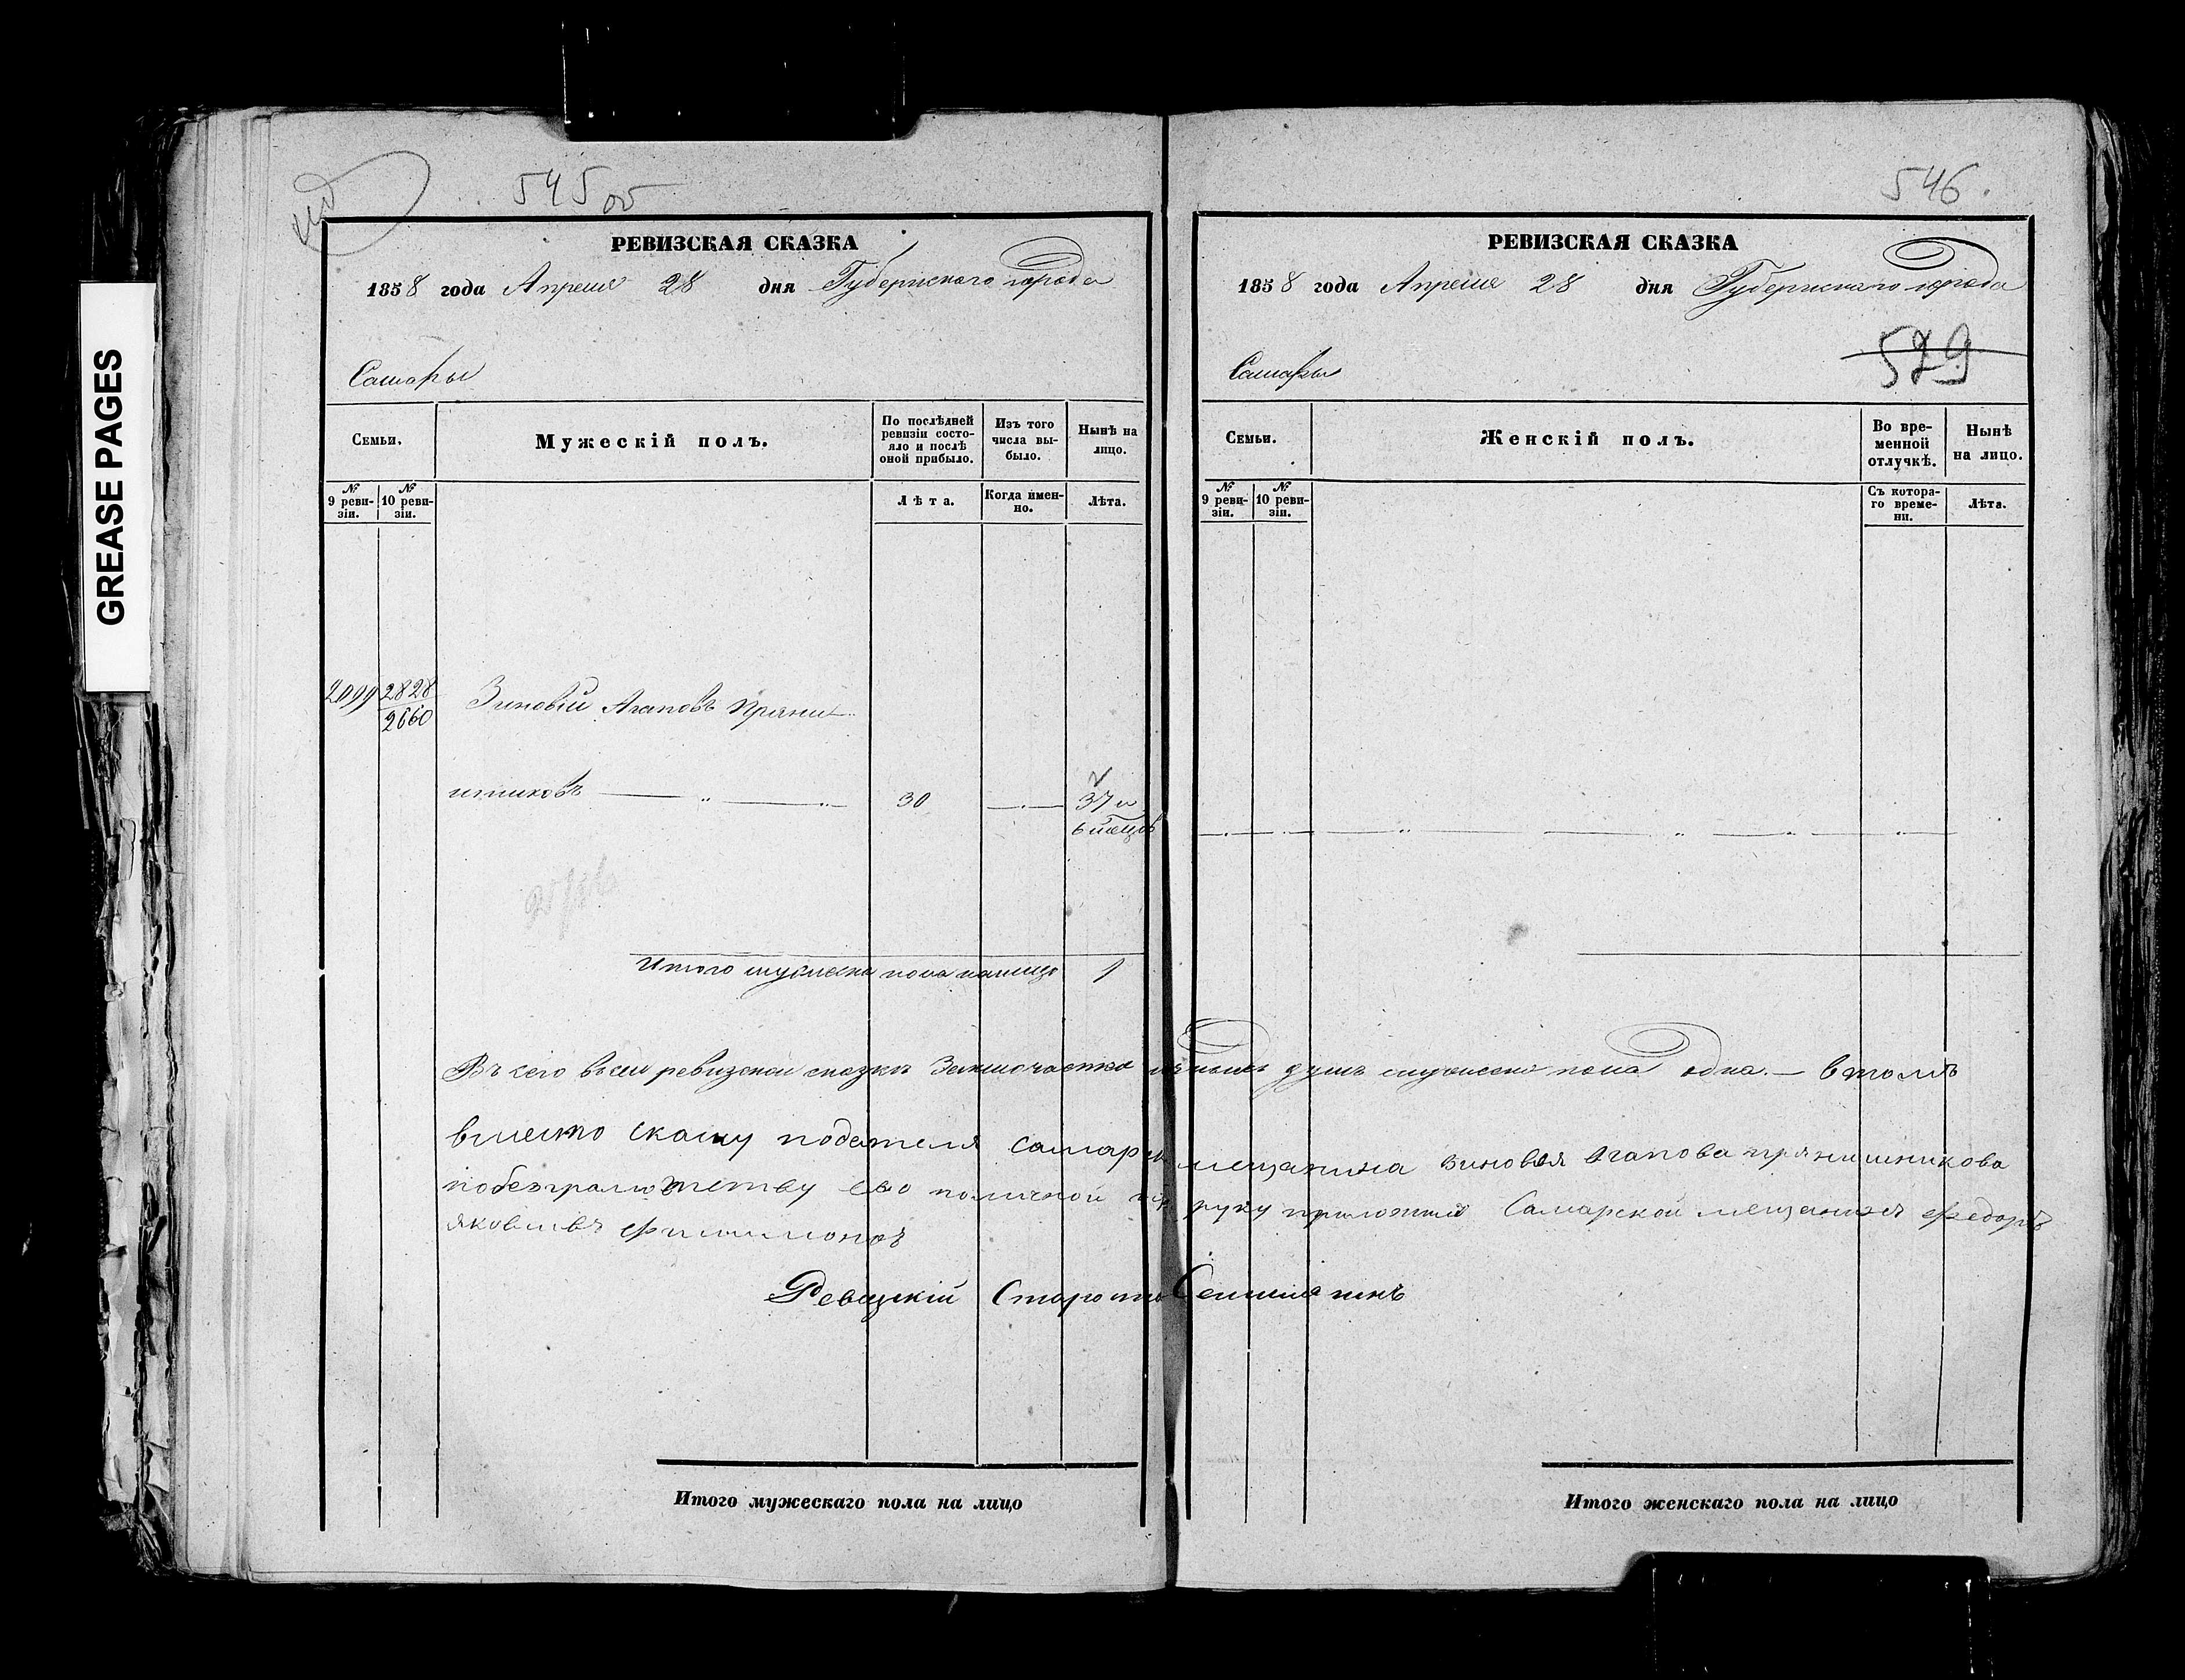 GREASE PAGES
545 об
РЕВИЗСКАЯ СКАЗКА
1858 года Апреля 28 дня Губернскаго города
Самары
Семьи.
Мужескій полъ.
По послѣдней ревизіи состояло и послѣ оной прибыло.
Изъ того числа выбыло.
Нынѣ на лицо.
№ 9 ревизіи.
№ 10 ревизіи.
Лѣта.
Когда именно.
Лѣта.
2099 2828 Зиновій Агаповъ Пряни-
2660
шниковъ 30 37 и
6 мѣсцов
Итого мужеска пола налицо 1
Итого мужескаго пола на лицо
546.
РЕВИЗСКАЯ СКАЗКА
1858 года Апреля 28 дня Губернскаго города
Самары
579
Семьи.
Женскій полъ.
Во временной отлучкѣ.
Нынѣ на лицо.
№ 9 ревизіи.
№ 10 ревизіи.
Съ котораго времени.
Лѣта.
Итого женскаго пола на лицо
ревизской сказки душъ мужеска пола одна. — втомъ
вместо скаску подателя самар мещанина Зиновея Агапова прянишникова
побезграмотству ево поличной руку приложилъ Самарской мещанинъ Федоръ
яковлевъ Филимоновъ
Староста